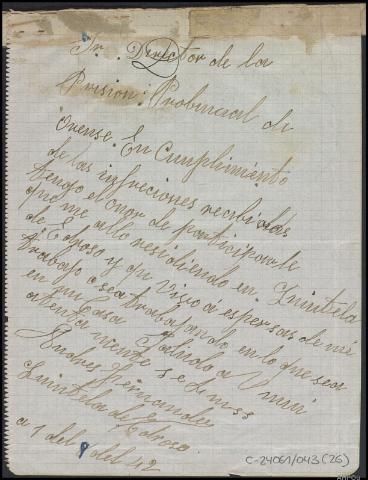 Sr. Director de la
Prision: Probincial de
Orense. En Cumplimiento
de las infruciones recibidas
tengo el onor de participarle
que me allo residiendo en Quintela
de Edroso y qu vivo á espensas de mi
trabajo o sea trabajando en lo que sea
en mi Casa Saludo a muy
atenta mente s e q m s s
Andres Hernandez
Quintela de Edroso
a 1 del 9 del 42
C-24061/043 (26)